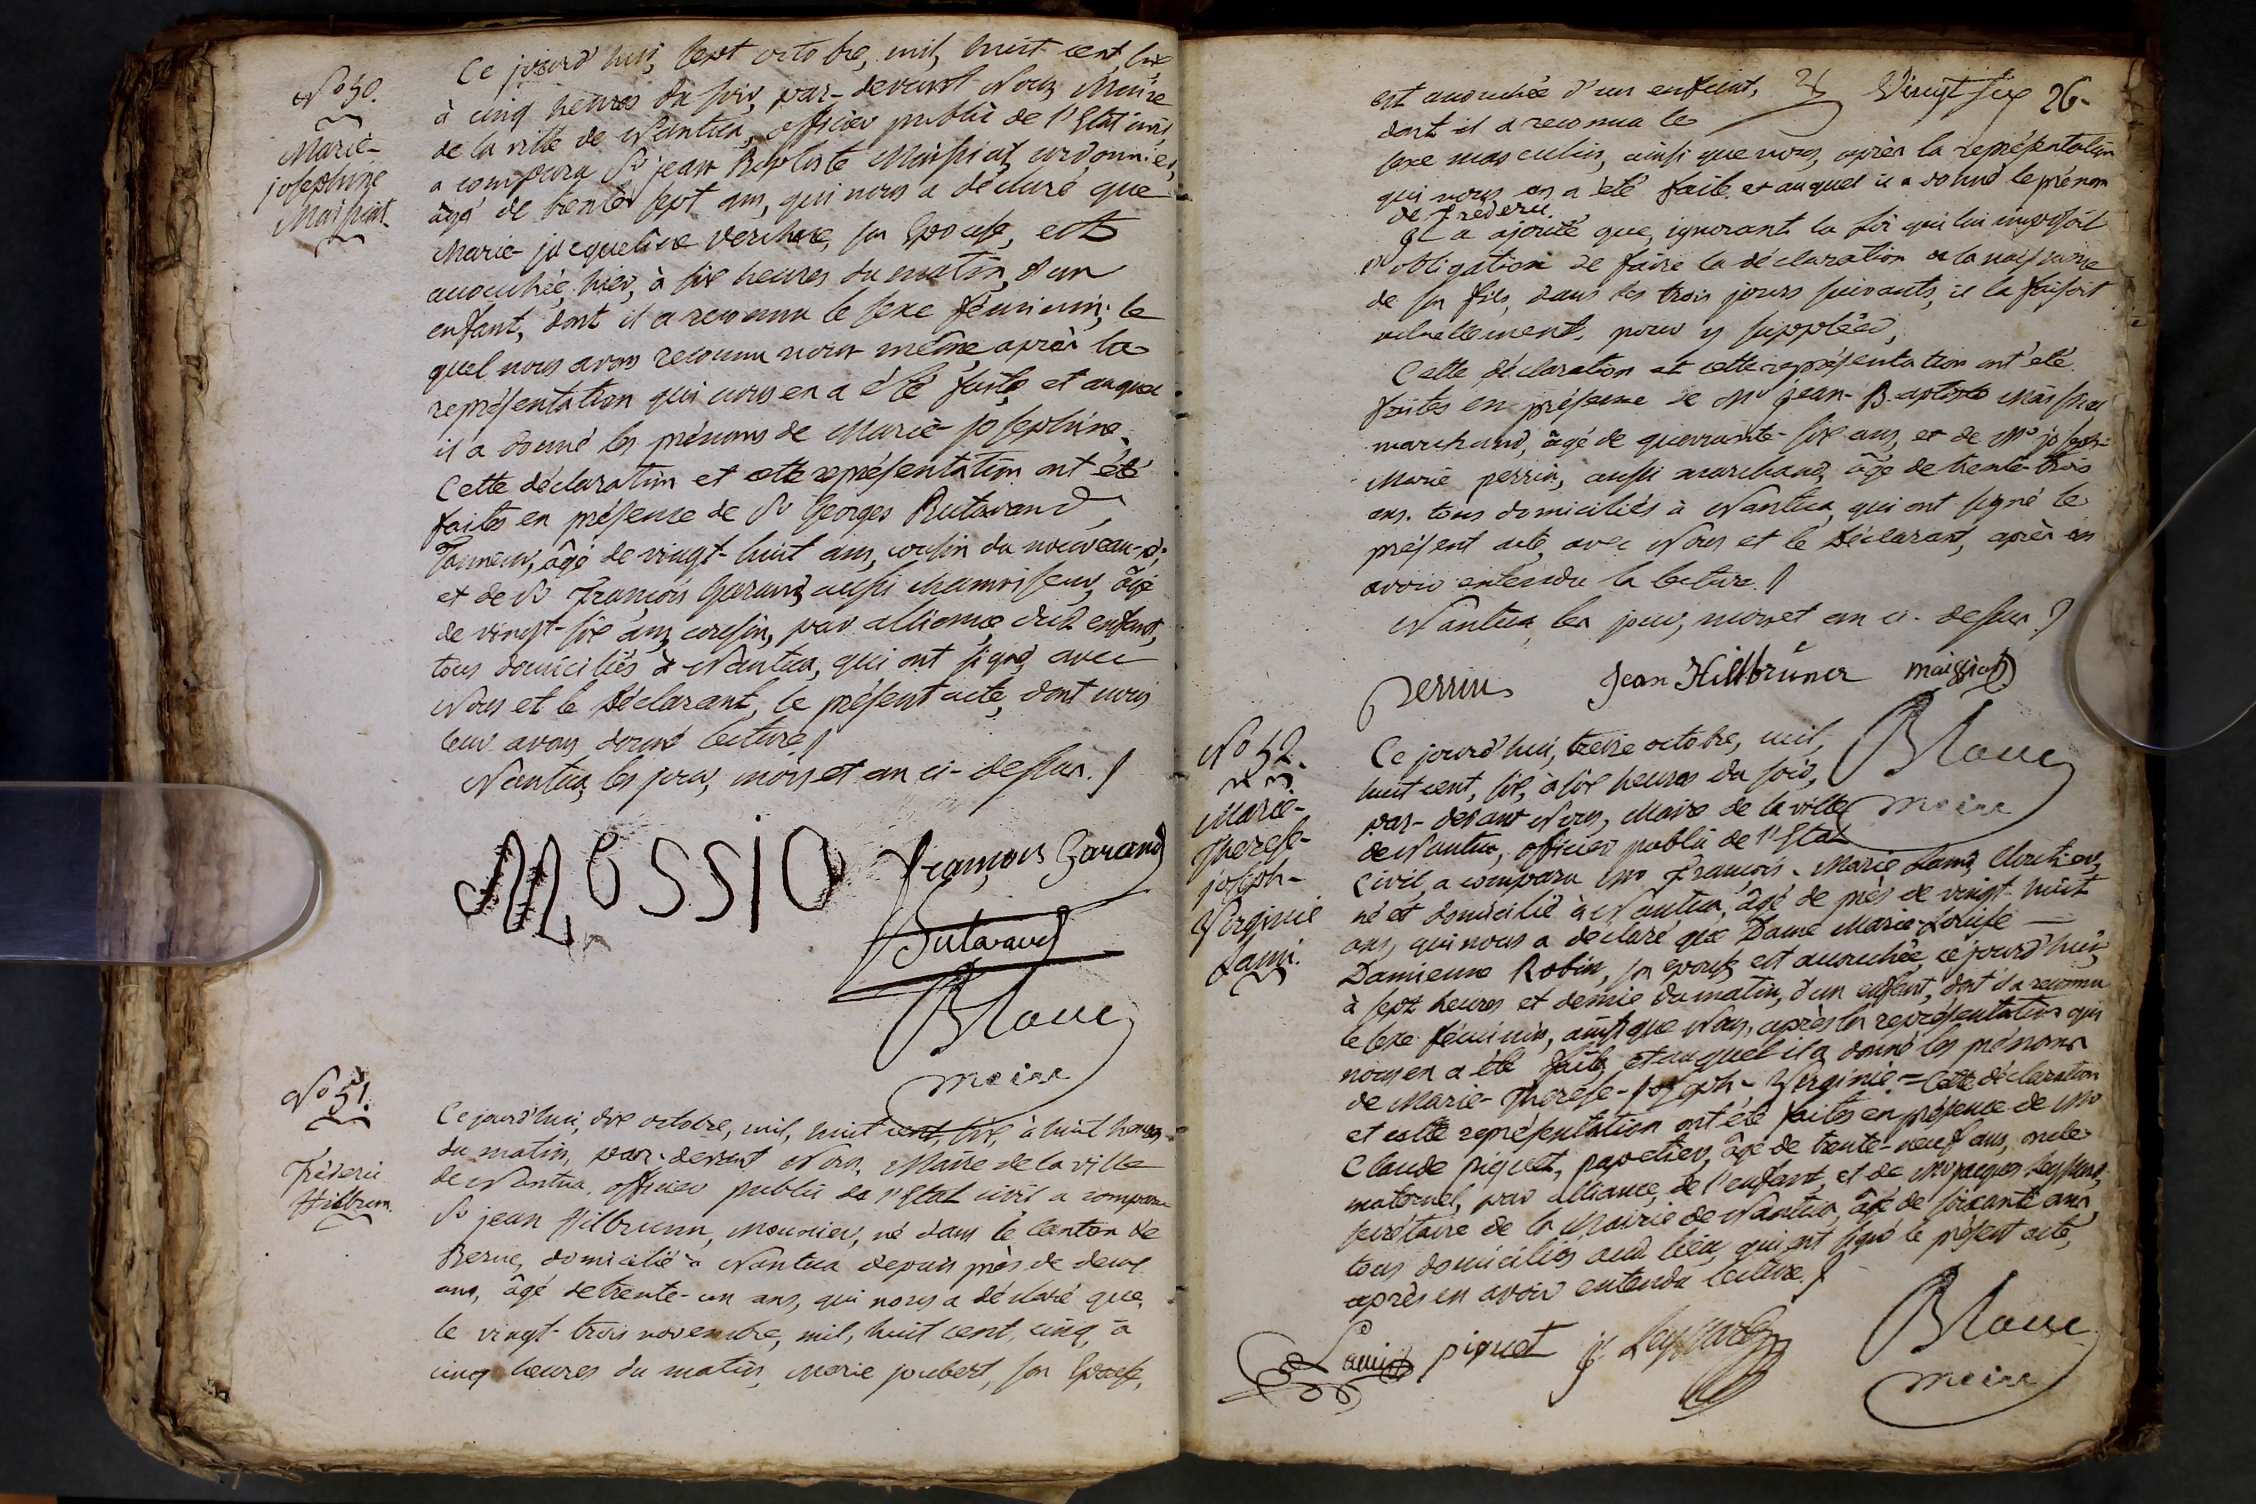 No 50.
Marie-
josephine
Maissiat
Ce jourd'hui, sept octobre, mil, huit cent, six
à cinq heures du soir, par-devant Nous, Maire
de la ville de Nantua, officier public de l'Etat civil,
a comparu Sr jean Baptiste Maissiat, cordonnier,
âgé de trente sept ans, qui nous a déclaré que
Marie-jacqueline Verchere, son Epouse, est
accouchée, hier, à six heures du matin, d'un
enfant, dont il a reconnu le sexe féminin; le
quel nous avons reconnu nous même après la
représentation qui nous en a été faite, et auquel
il a donné les prénoms de Marie-josephine.
Cette déclaration et cette représentation ont été
faites en présence de Sr Georges Butavand,
Tanneur, âgé de vingt-huit ans, cousin du nouveau-né
et de Sr François Garand, aussi chamoiseur, âgé
de vingt-six ans, cousin, par alliance, dud. enfant,
tous domiciliés à Nantua, qui ont signé, avec
Nous et le Déclarant, le présent acte, dont nous
leur avons donné lecture./
Nantua, les jour, mois et an ci-dessus./
françois Garand
Butavand
Blanc
maire
No 51.
Fréderic
Hilbrun.
Ce jourd'hui, dix octobre, mil, huit cent, six, à huit heures
du matin, par-devant Nous, Maire de la ville
de Nantua, officier public de l'Etat civil a comparu
Sr jean Hilbrunn, Mounier, né dans le Canton de
Berne, domicilié à Nantua depuis près de deux
ans, âgé de trente-un ans, qui nous a déclaré que,
le vingt-trois novembre, mil, huit cent, cinq, à
cinq heures du matin, Marie joubert, son Epouse,
Vingt six 26.
est accouchée d'un enfant,
dont il a reconnu le
sexe masculin, ainsi que nous, après la représentation
qui nous en a été faite et auquel il a donné le prénom
de Fréderic.
Il a ajouté que, ignorant la loi qui lui imposoit
l'obligation de faire la déclaration de la naissance
de son fils, dans les trois jours suivants, il la faisoit
actuellement, pour y suppléer,
Cette déclaration et cette représentation ont été
faites en présence de Mr jean-Baptiste Maissiat
marchand, âgé de quarante-six ans, et de Mr joseph-
Marie perrin, aussi marchand, âgé de trente-trois
ans, tous domiciliés à Nantua, qui ont signé le
présent acte, avec Nous et le Déclarant, après en
avoir entendu la lecture./
Nantua, les jour, mois et an ci-dessus./
perrin Jean Hillbruner maissiat
Blanc
maire
No 52.
Marie-
Therese-
joseph-
Virginie
Lami.
Ce jourd'hui, treize octobre, mil,
huit cent, six, à six heures du soir,
par-devant Nous, Maire de la ville
de Nantua, officier public de l'Etat
Civil, a comparu Mr François-Marie Lami, Cloutier,
né et domicilié à Nantua, âgé de près de vingt-huit
ans, qui nous a déclaré que Dame Marie-Louise
Damienne Robin, son épouse, est accouchée, ce jourd'hui,
à sept heures et demie du matin, d'un enfant, dont il a reconnu
le sexe féminin, ainsi que Nous, après la représentation qui
nous en a été faite, et auquel il a donné les prénoms
de Marie-Therese-joseph-Virginie = Cette déclaration
et cette représentation ont été faites en présence de Mr
Claude piquet, papetier, âgé de trente-neuf ans, oncle
maternel, par alliance, de l'enfant, et de Mr jacques
secrétaire de la Mairie de Nantua, âgé de soixante ans,
tous domiciliés aud. lieu, qui ont signé le présent acte,
après en avoir entendu lecture./
Lami piquet
Blanc
maire